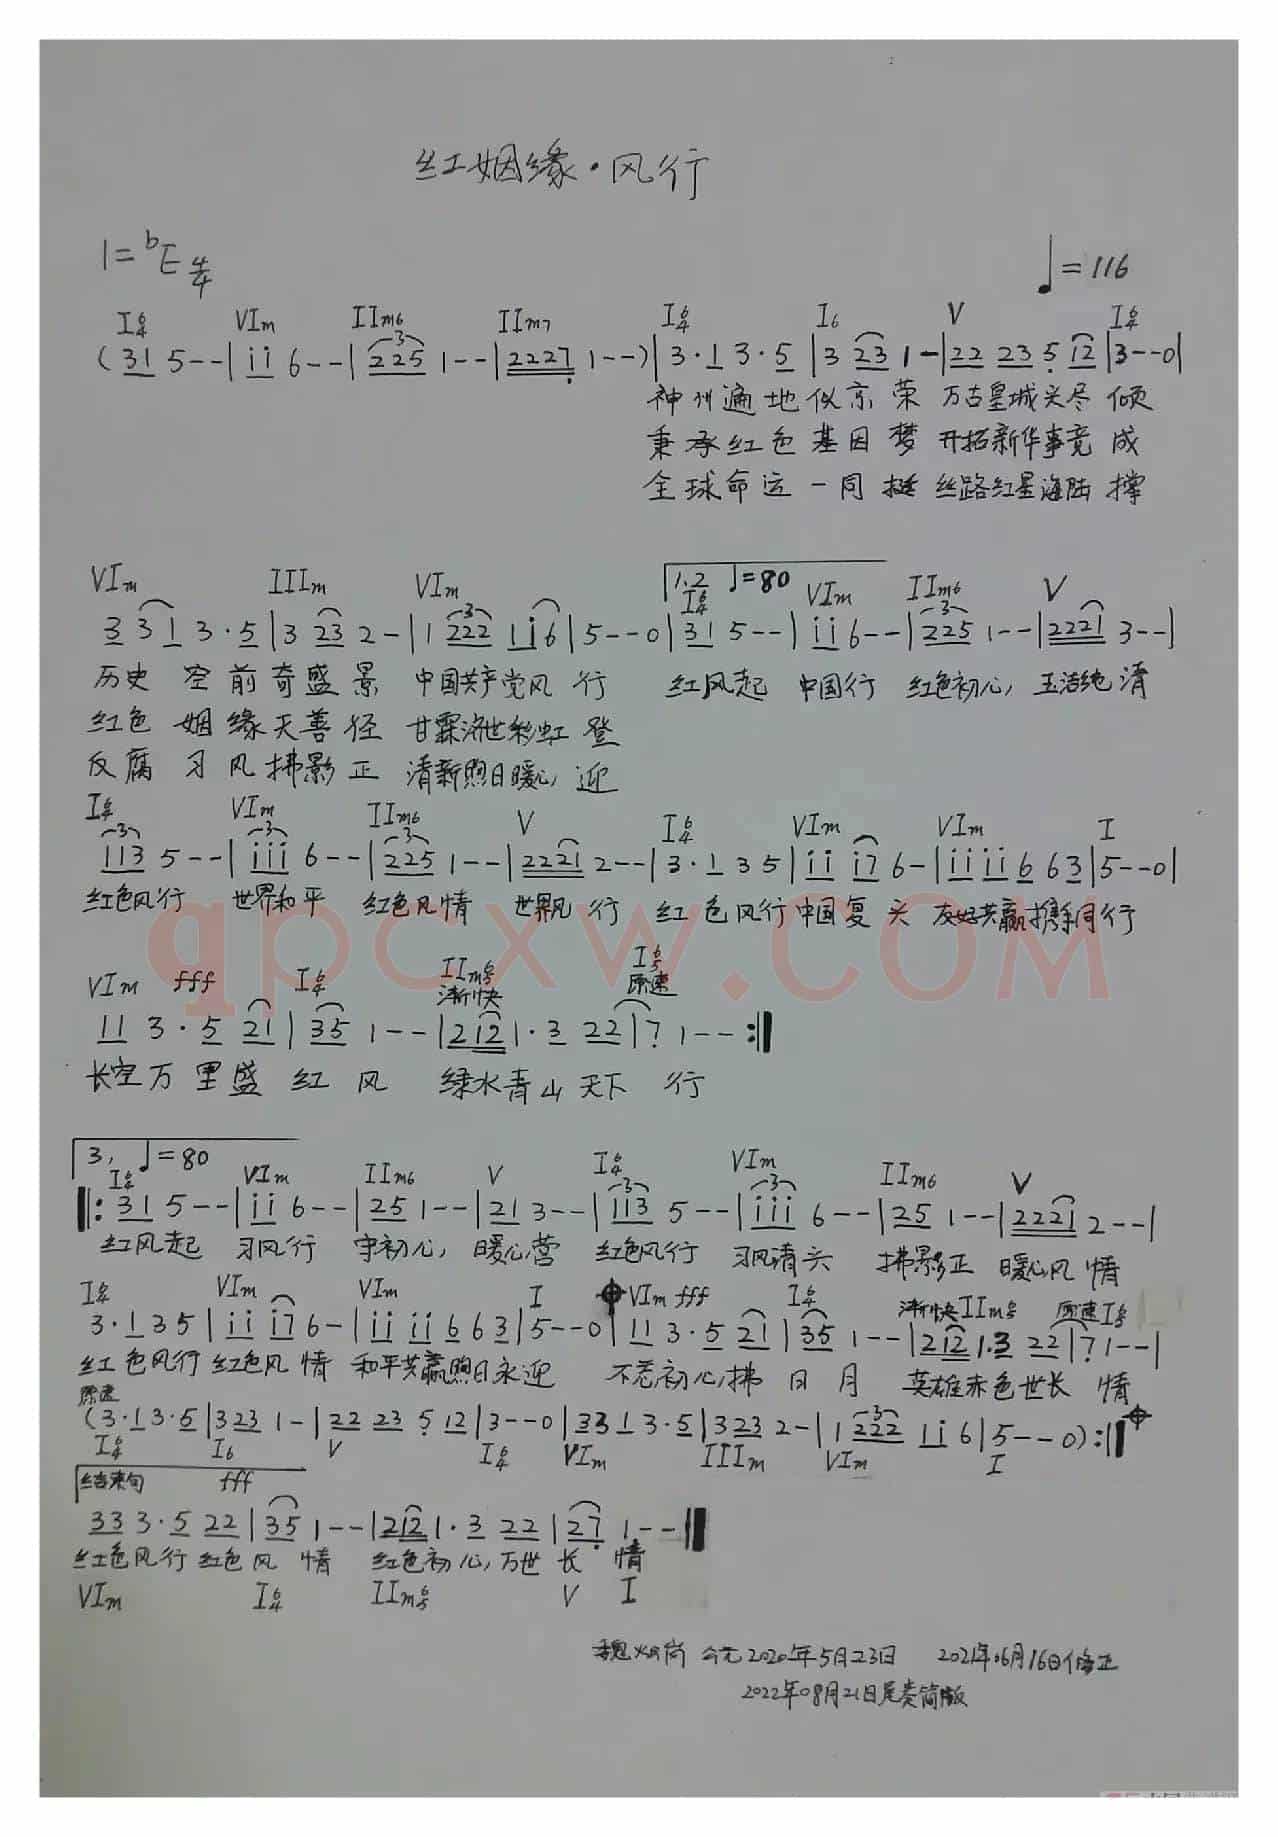 红姻缘·风行
1=ᵇE 4/4 ♩=116
I6/4 VIm IIm6 IIm7 I6/4 I6 V I6/4
(31 5--|ii 6--|225 1--|2227 1--)|3·1 3·5|3 23 1-|22 23 5 12|3--0|
神州遍地似京荣 万古皇城关尽倾
秉承红色基因梦 开拓新华事竟成
全球命运一同挺 丝路红星海陆撑
VIm IIIm VIm 1.2 ♩=80 I6/4 VIm IIm6 V
3 31 3·5|3 23 2-|1 222 1i6|5--0|31 5--|ii 6--|225 1--|2221 3--|
历史空前奇盛景 中国共产党风行 红风起 中国行 红色初心,玉洁纯清
红色姻缘天善径 甘霖济世彩虹登
反腐习风拂影正 清新煦日暖心迎
I6/4 VIm IIm6 V I6/4 VIm VIm I
113 5--|iii 6--|225 1--|2221 2--|3·1 35|ii i7 6-|ii ii 6 63|5--0|
红色风行 世界和平 红色风情 世界风行 红色风行中国复兴 友好共赢携手同行
qpcxw.COM
VIm fff I6/4 IIm6/5 渐快 I6/5 原速
11 3·5 21|35 1--|212 1·3 22|7 1--:‖
长空万里盛红风 绿水青山天下行
3, ♩=80
I6/4 VIm IIm6 V I6/4 VIm IIm6 V
‖:31 5--|ii 6--|25 1--|21 3--|113 5--|iii 6--|25 1--|2221 2--|
红风起 习风行 守初心, 暖心营 红色风行 习风清头 拂影正 暖心风情
I6/4 VIm VIm I VIm fff I6/4 渐快 IIm6/5 原速 I6/5
3·1 35|ii i7 6-|ii ii 6 63|5--0|11 3·5 21|35 1--|212 1·3 22|7 1--|
红色风行 红色风情 和平共赢煦日永迎 不忘初心,拂日月 英雄赤色世长情
原速
(3·1 3·5|323 1-|22 23 5 12|3--0|33 1 3·5|323 2-|1 222 1i 6|5--0):‖
I6/4 I6 V I6/4 VIm IIIm VIm I
结束句 fff
33 3·5 22|35 1--|212 1·3 22|27 1--‖
红色风行红色风情 红色初心,万世长情
VIm I6/4 IIm6/5 V I
公元2020年5月23日 2021年06月16日修正
2022年08月21日 简版